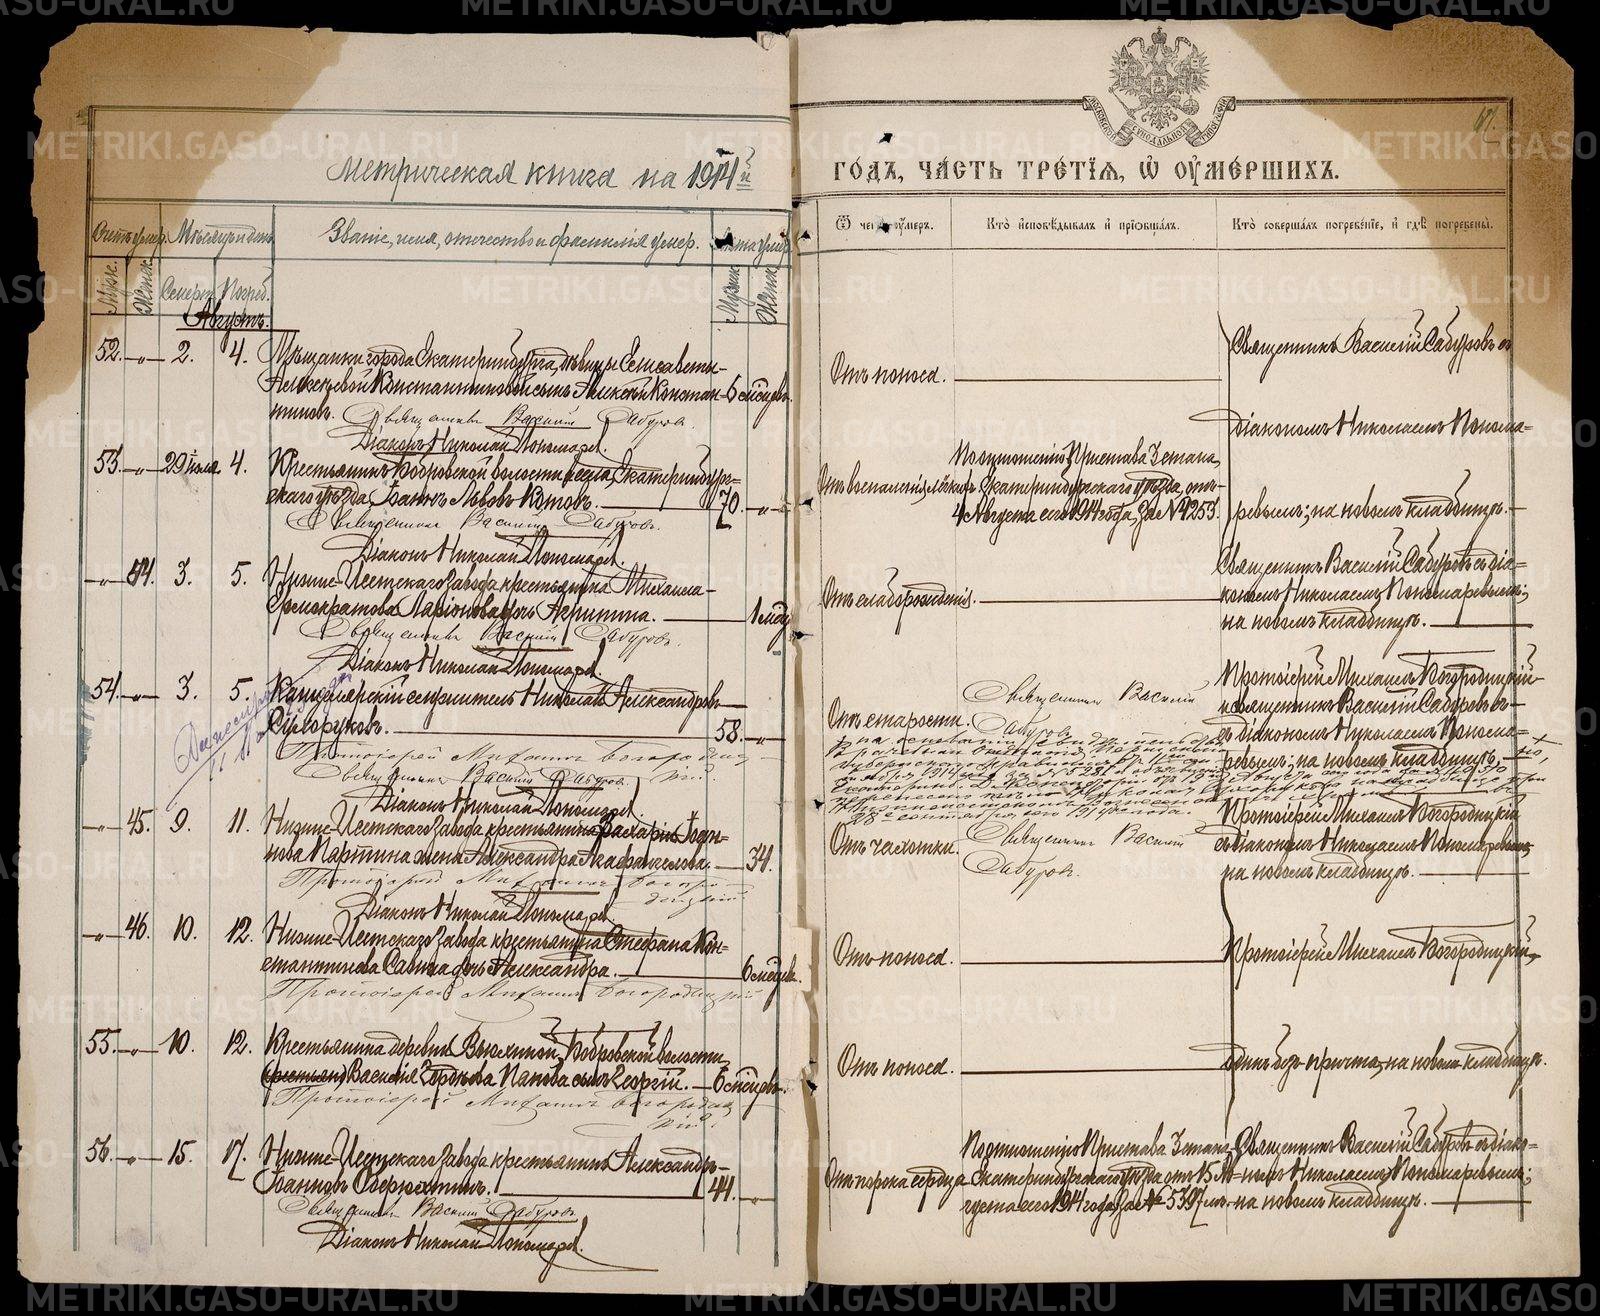 Метрическая книга на 1914й
годъ, часть третїя, ѡ оумершихъ.
Счетъ умер.
Мѣсяцъ и день
Званіе, имя, отчество и фамилія умер.
Лѣта умер.
Муж.
Женск.
Смерти
Погреб.
Мужск.
Женск.
Ѿ чего оумеръ.
Кто исповѣдывалъ и прїобщалъ.
Кто совершалъ погребенїе, и гдѣ погребены.
Августъ.
52. —„— 2. 4. Мѣщанки города Екатеринбурга, дѣвицы Елисаветы
Алексѣевой Константиновой сынъ Алексѣй Констан-
тиновъ.
6 мѣсяцевъ.
Священникъ Василій Сабуровъ
Діаконъ Николай Пономаревъ.
Отъ поноса.
Священникъ Василій Сабуровъ съ
діакономъ Николаемъ Понома-
ревымъ; на новомъ кладбищѣ.
53. —„— 29 іюля 4. Крестьянинъ Бобровской волости и села, Екатеринбург-
скаго уѣзда, Іоаннъ Львовъ Котовъ.
70. —„—
Священникъ Василій Сабуровъ.
Діаконъ Николай Пономаревъ.
Отъ воспаленія легкихъ.
По отношенію Пристава 3 стана,
Екатеринбургскаго уѣзда, отъ
4 Августа сего 1914 года, за № 4253.
—„— 44. 3. 5. Нижне-Исетскаго завода крестьянина Михаила
Ермократова Ларіонова дочь Агриппина.
1 мѣсяц.
Священникъ Василій Сабуровъ.
Діаконъ Николай Пономаревъ.
Отъ слаборожденія.
Священникъ Василій Сабуровъ съ діа-
кономъ Николаемъ Пономаревымъ;
на новомъ кладбищѣ.
54. —„— 3. 5. Канцелярскій служитель Николай Александровъ
Сухоруковъ.
58. —„—
Протоіерей Михаилъ Богородиц-
кій.
Священникъ Василій Сабуровъ.
Діаконъ Николай Пономаревъ.
Отъ старости.
Священникъ Василій
Сабуровъ.
Протоіерей Михаилъ Богородицкій
и священникъ Василій Сабуровъ
съ діакономъ Николаемъ Понома-
ревымъ; на новомъ кладбищѣ.
—„— 45. 9. 11. Нижне-Исетскаго завода крестьянина Захаріи Іоан-
нова Партина жена Александра Агафангелова.
34.
Протоіерей Михаилъ Богоро-
дицкій
Діаконъ Николай Пономаревъ.
Отъ чахотки.
Священникъ Василій
Сабуровъ.
Протоіерей Михаилъ Богородицкій
съ діакономъ Николаемъ Пономаревымъ;
на новомъ кладбищѣ.
—„— 46. 10. 12. Нижне-Исетскаго завода крестьянина Стефана Кон-
стантинова Савина дочь Александра.
6 мѣсяцев.
Протоіерей Михаилъ Богородицкій
Отъ поноса.
Протоіерей Михаилъ Богородицкій,
одинъ безъ причта, на новомъ кладбищѣ.
55. —„— 10. 12. Крестьянина деревни Вьюхиной, Бобровской волости,
Василія Панова сынъ Георгій.
6 мѣсяцевъ.
Протоіерей Михаилъ Богородиц-
кій.
Отъ поноса.
56. —„— 15. 17. Нижне-Исетскаго завода крестьянинъ Александръ
Іоанновъ Оберюхтинъ.
44. —„—
Священникъ Василій Сабуровъ
Діаконъ Николай Пономаревъ.
Отъ порока сердца
По отношенію Пристава 3 стана,
Екатеринбургскаго уѣзда отъ 15 Ав-
густа сего 1914 года, за № 5397.
Священникъ Василій Сабуровъ съ діако-
номъ Николаемъ Пономаревымъ;
на новомъ кладбищѣ.
METRIKI.GASO-URAL.RU